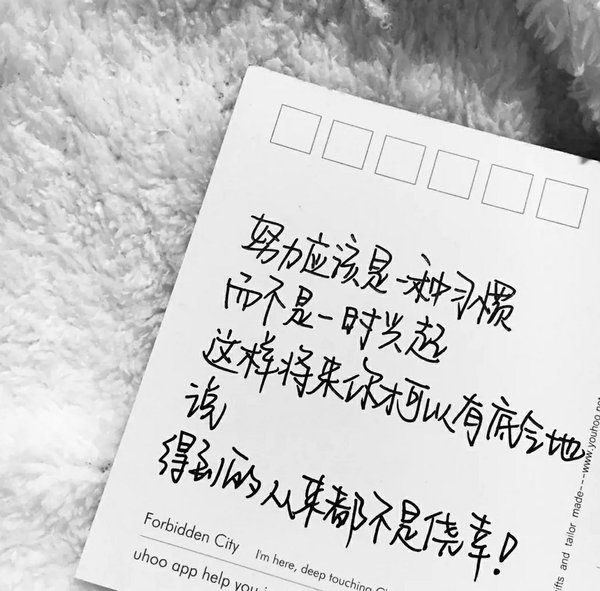 努力应该是一种习惯
而不是一时兴起
这样将来你才可以有底气地
说
得到的从来都不是侥幸!
Forbidden City I'm here, deep touching
uhoo app help you
and tailor made---www.youhoo.net